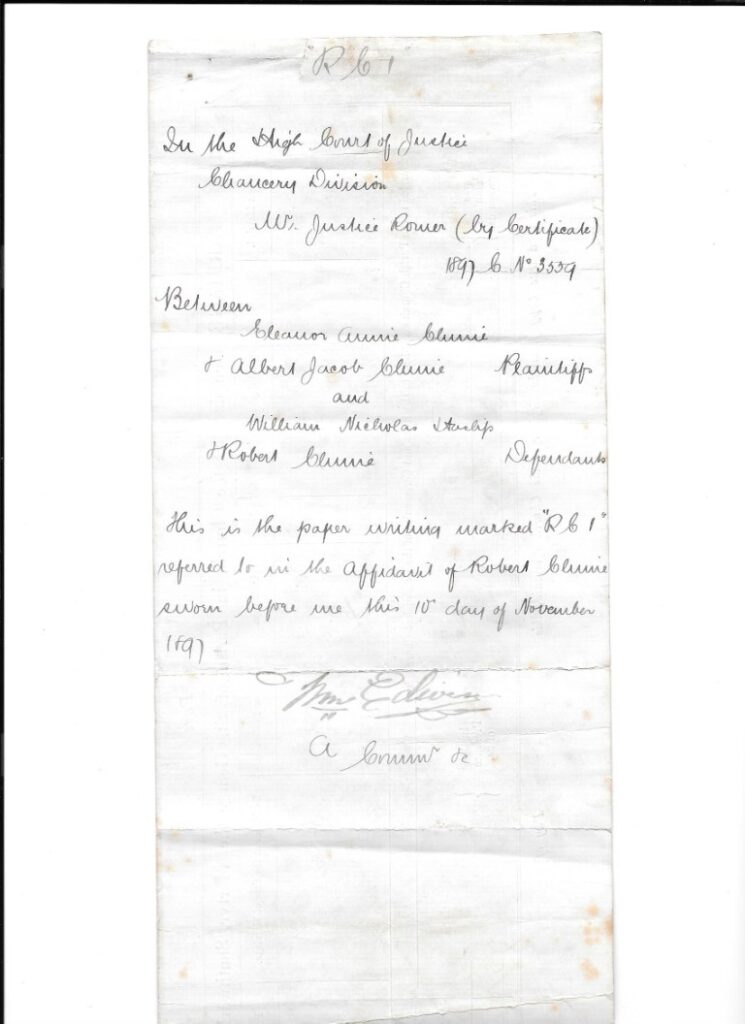 "R C 1"
In the High Court of Justice
Chancery Division
Mr. Justice Romer (by Certificate)
1897 C No 3559
Between
Eleanor Annie Clunie
& Albert Jacob Clunie Plaintiffs
and
William Nicholas Haslip
& Robert Clunie Defendants
This is the paper writing marked "R C 1"
referred to in the Affidavit of Robert Clunie
sworn before me this 10 day of November
1897
Wm Edwin
A Commr &c